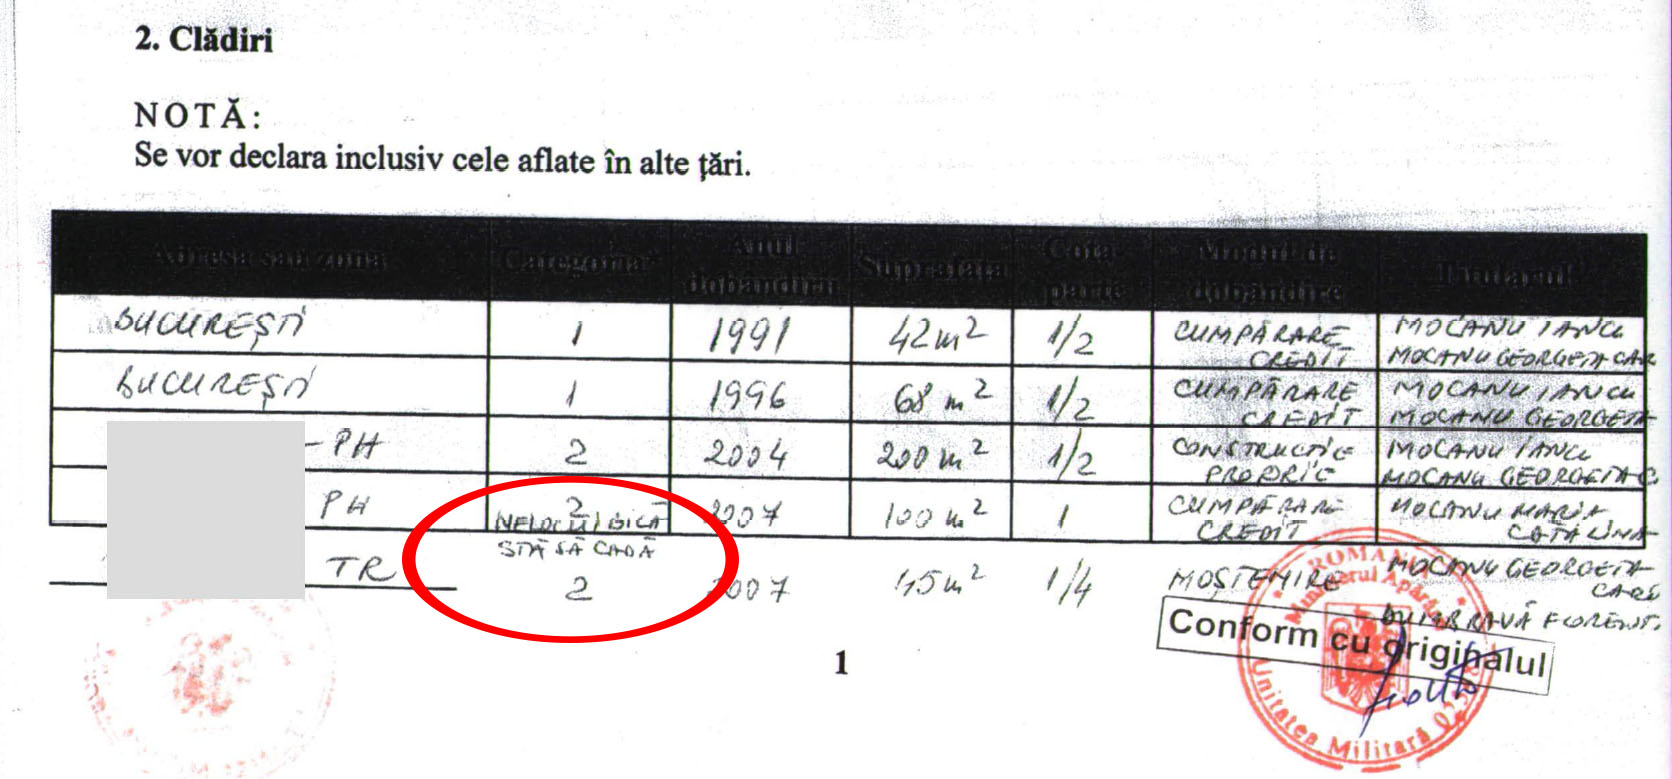 2. Clădiri
NOTĂ:
Se vor declara inclusiv cele aflate în alte țări.
Adresa sau zona Categoria* Anul dobândirii Suprafața Cota-parte Modul de dobândire Titularul
BUCUREȘTI 1 1991 42 m² 1/2 CUMPĂRARE CREDIT MOCANU IANCU MOCANU GEORGETA CAR
BUCUREȘTI 1 1996 68 m² 1/2 CUMPĂRARE CREDIT MOCANU IANCU MOCANU GEORGETA
- PH 2 2004 200 m² 1/2 CONSTRUCȚIE PROPRIE MOCANU IANCU MOCANU GEORGETA C
PH 2 NELOCUIBILĂ 2007 100 m² 1 CUMPĂRARE CREDIT MOCANU MARIA CĂTĂLINA
TR STĂ SĂ CADĂ 2 2007 45 m² 1/4 MOȘTENIRE MOCANU GEORGETA
DUMBRAVĂ FLORENT
1
Conform cu originalul
ROMÂNI
Ministerul Apără
Unitatea Militară 02